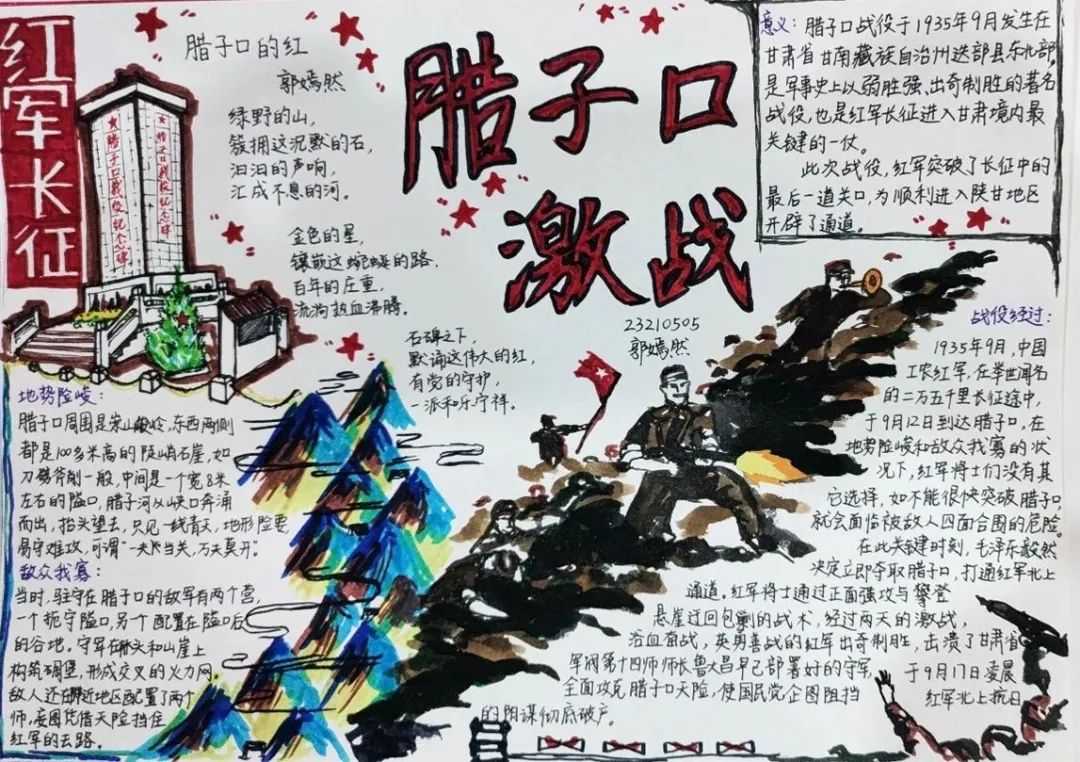 红军长征
腊子口战役纪念碑
腊子口的红
郭嫣然
绿野的山，
簇拥这沉默的石，
汩汩的声响，
汇成不息的河。
金色的星，
镶嵌这蜿蜒的路，
百年的庄重，
流淌热血沸腾。
石碑之下，
默诵这伟大的红，
有党的守护，
一派和乐宁祥。
腊子口
激战
23210505
郭嫣然
意义：腊子口战役于1935年9月发生在
甘肃省甘南藏族自治州迭部县东北部，
是军事史上以弱胜强、出奇制胜的著名
战役，也是红军长征进入甘肃境内最
关键的一仗。
此次战役，红军突破了长征中的
最后一道关口，为顺利进入陕甘地区
开辟了通道。
地势险峻：
腊子口周围是崇山峻岭，东西两侧
都是100多米高的陡峭石崖，如
刀劈斧削一般，中间是一个宽8米
左右的隘口，腊子河从峡口奔涌
而出，抬头望去，只见一线青天，地形险要
易守难攻，可谓"一夫当关，万夫莫开"。
敌众我寡：
当时，驻守在腊子口的敌军有两个营，
一个扼守隘口，另个配置在隘口后
的谷地，守军在桥头和山崖上
构筑碉堡，形成交叉的火力网。
敌人还在附近地区配置了两个
师，妄图凭借天险挡住
红军的去路。
战役经过：
1935年9月，中国
工农红军，在举世闻名
的二万五千里长征途中，
于9月12日到达腊子口，在
地势险峻和敌众我寡的状
况下，红军将士们没有其
它选择，如不能很快突破腊子口，
就会面临被敌人四面合围的危险。
在此关键时刻，毛泽东毅然
决定立即夺取腊子口，打通红军北上
通道。红军将士通过正面强攻与攀登
悬崖迂回包剿的战术，经过两天的激战，
浴血奋战，英勇善战的红军出奇制胜，击溃了甘肃省
军阀第十四师师长鲁大昌早已部署好的守军，于9月17日凌晨
全面攻克腊子口天险，使国民党企图阻挡红军北上抗日
的阴谋彻底破产。